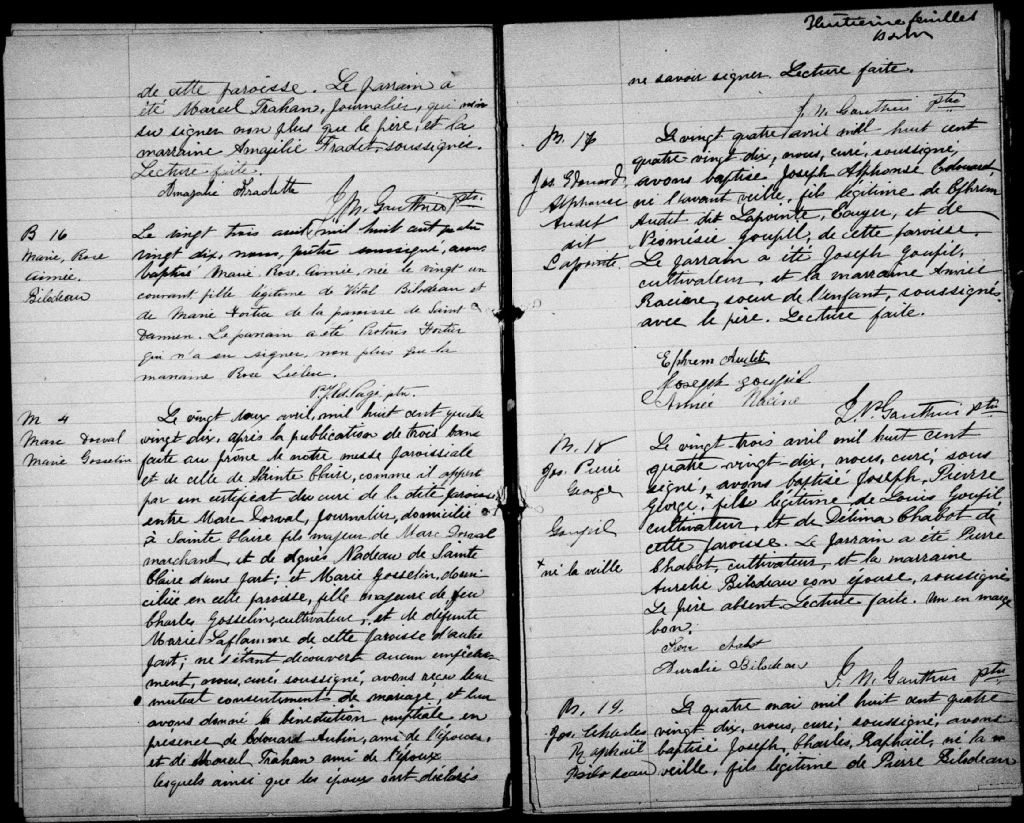 de cette paroisse. Le parrain a
été Marcel Trahan, journalier, qui n'a
su signer non plus que le père, et la
marraine Amazilie Fradet, soussignée.
Lecture faite.
Amazalie Fradette
J. N. Gauthier ptre.
B 16
Marie, Rose
Aimée.
Bilodeau
Le vingt trois avril mil huit cent quatre
vingt dix, nous, prêtre soussigné, avons
baptisé Marie Rose Aimée, née le vingt un
courant, fille légitime de Vital Bilodeau et
de Marie Fortier de la paroisse de Saint
Damien. Le parrain a été Fortier
qui n'a su signer, non plus que la
marraine Rose Leclerc.
Ed. Pagé ptre.
M 4
Marc Dorval
Marie Gosselin
Le vingt avril, mil huit cent quatre
vingt dix, après la publication de trois bans
faite au prône de notre messe paroissiale
et de celle de Sainte Claire, comme il appert
par un certificat du curé de la dite paroisse
entre Marc Dorval, journalier, domicilié
à Sainte Claire fils majeur de Marc Dorval
marchand, et de Agnès Nadeau de Sainte
Claire d'une part; et Marie Gosselin, domi
ciliée en cette paroisse, fille majeure de feu
Charles Gosselin, cultivateur, et de défunte
Marie Laflamme de cette paroisse d'autre
part; ne s'étant découvert aucun empêche-
ment, nous, curé soussigné, avons reçu leur
mutuel consentement de mariage, et leur
avons donné la bénédiction nuptiale en
présence de Edouard Aubin, ami de l'épouse,
et de Marcel Trahan ami de l'époux
lesquels ainsi que les époux ont déclaré
feuillet
ne savoir signer. Lecture faite.
J. N. Gauthier ptre
B. 17
Jos. Edouard
Alphonse
Audet
dit
Lapointe.
Le vingt quatre avril mil huit cent
quatre vingt dix, nous, curé, soussigné,
avons baptisé Joseph Alphonse Edouard,
né l'avant veille, fils légitime de Ephrem
Audet dit Lapointe, et de
Goupil, de cette paroisse.
Le parrain a été Joseph Goupil,
cultivateur, et la marraine Annie
Racine, soeur de l'enfant, soussignés
avec le père. Lecture faite.
Ephrem Audet
Joseph goupil
Année Racine
J. N. Gauthier ptre
B. 18
Jos. Pierre
George
Goupil
× né la veille
Le vingt-trois avril mil huit cent
quatre-vingt-dix, nous, curé, sous
signé, avons baptisé Joseph, Pierre
George,× fils légitime de Louis Goupil
cultivateur, et de Délima Chabot de
cette paroisse. Le parrain a été Pierre
Chabot, cultivateur, et la marraine
Aurelie Bilodeau son épouse, soussignés
Le père absent. Lecture faite. Un en marge
bon.
Auralie Bilodeau
J. N. Gauthier ptre
B. 19.
Jos. Charles
Raphaël
Bilodeau
Le quatre mai mil huit cent quatre
vingt dix, nous, curé, soussigné, avons
baptisé Joseph, Charles, Raphaël, né la
veille, fils légitime de Pierre Bilodeau